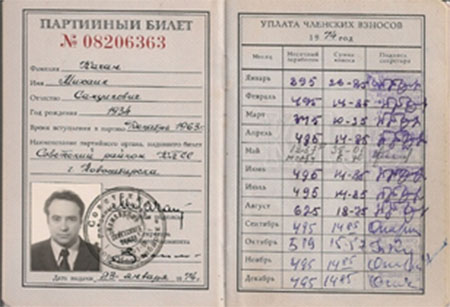 ПАРТИЙНЫЙ БИЛЕТ
№ 08206363
Фамилия Каган
Имя Михаил
Отчество Самуилович
Год рождения 1934
Время вступления в партию Декабрь 1963
Наименование партийного органа, выдавшего билет
Советский райком КПСС
г. Новосибирска
Дата выдачи 23 января 1974
УПЛАТА ЧЛЕНСКИХ ВЗНОСОВ
1974 год
Месяц Месячный заработок Сумма взноса Подпись секретаря
Январь 895 26-85
Февраль 495 14-85
Март 10-25
Апрель 495 14-85
Май
Июнь 495 14-85
Июль 495 14-85
Август 625 18-75
Сентябрь 495 14 85
Октябрь 519 15
Ноябрь 495 14 85
Декабрь 495 14 85